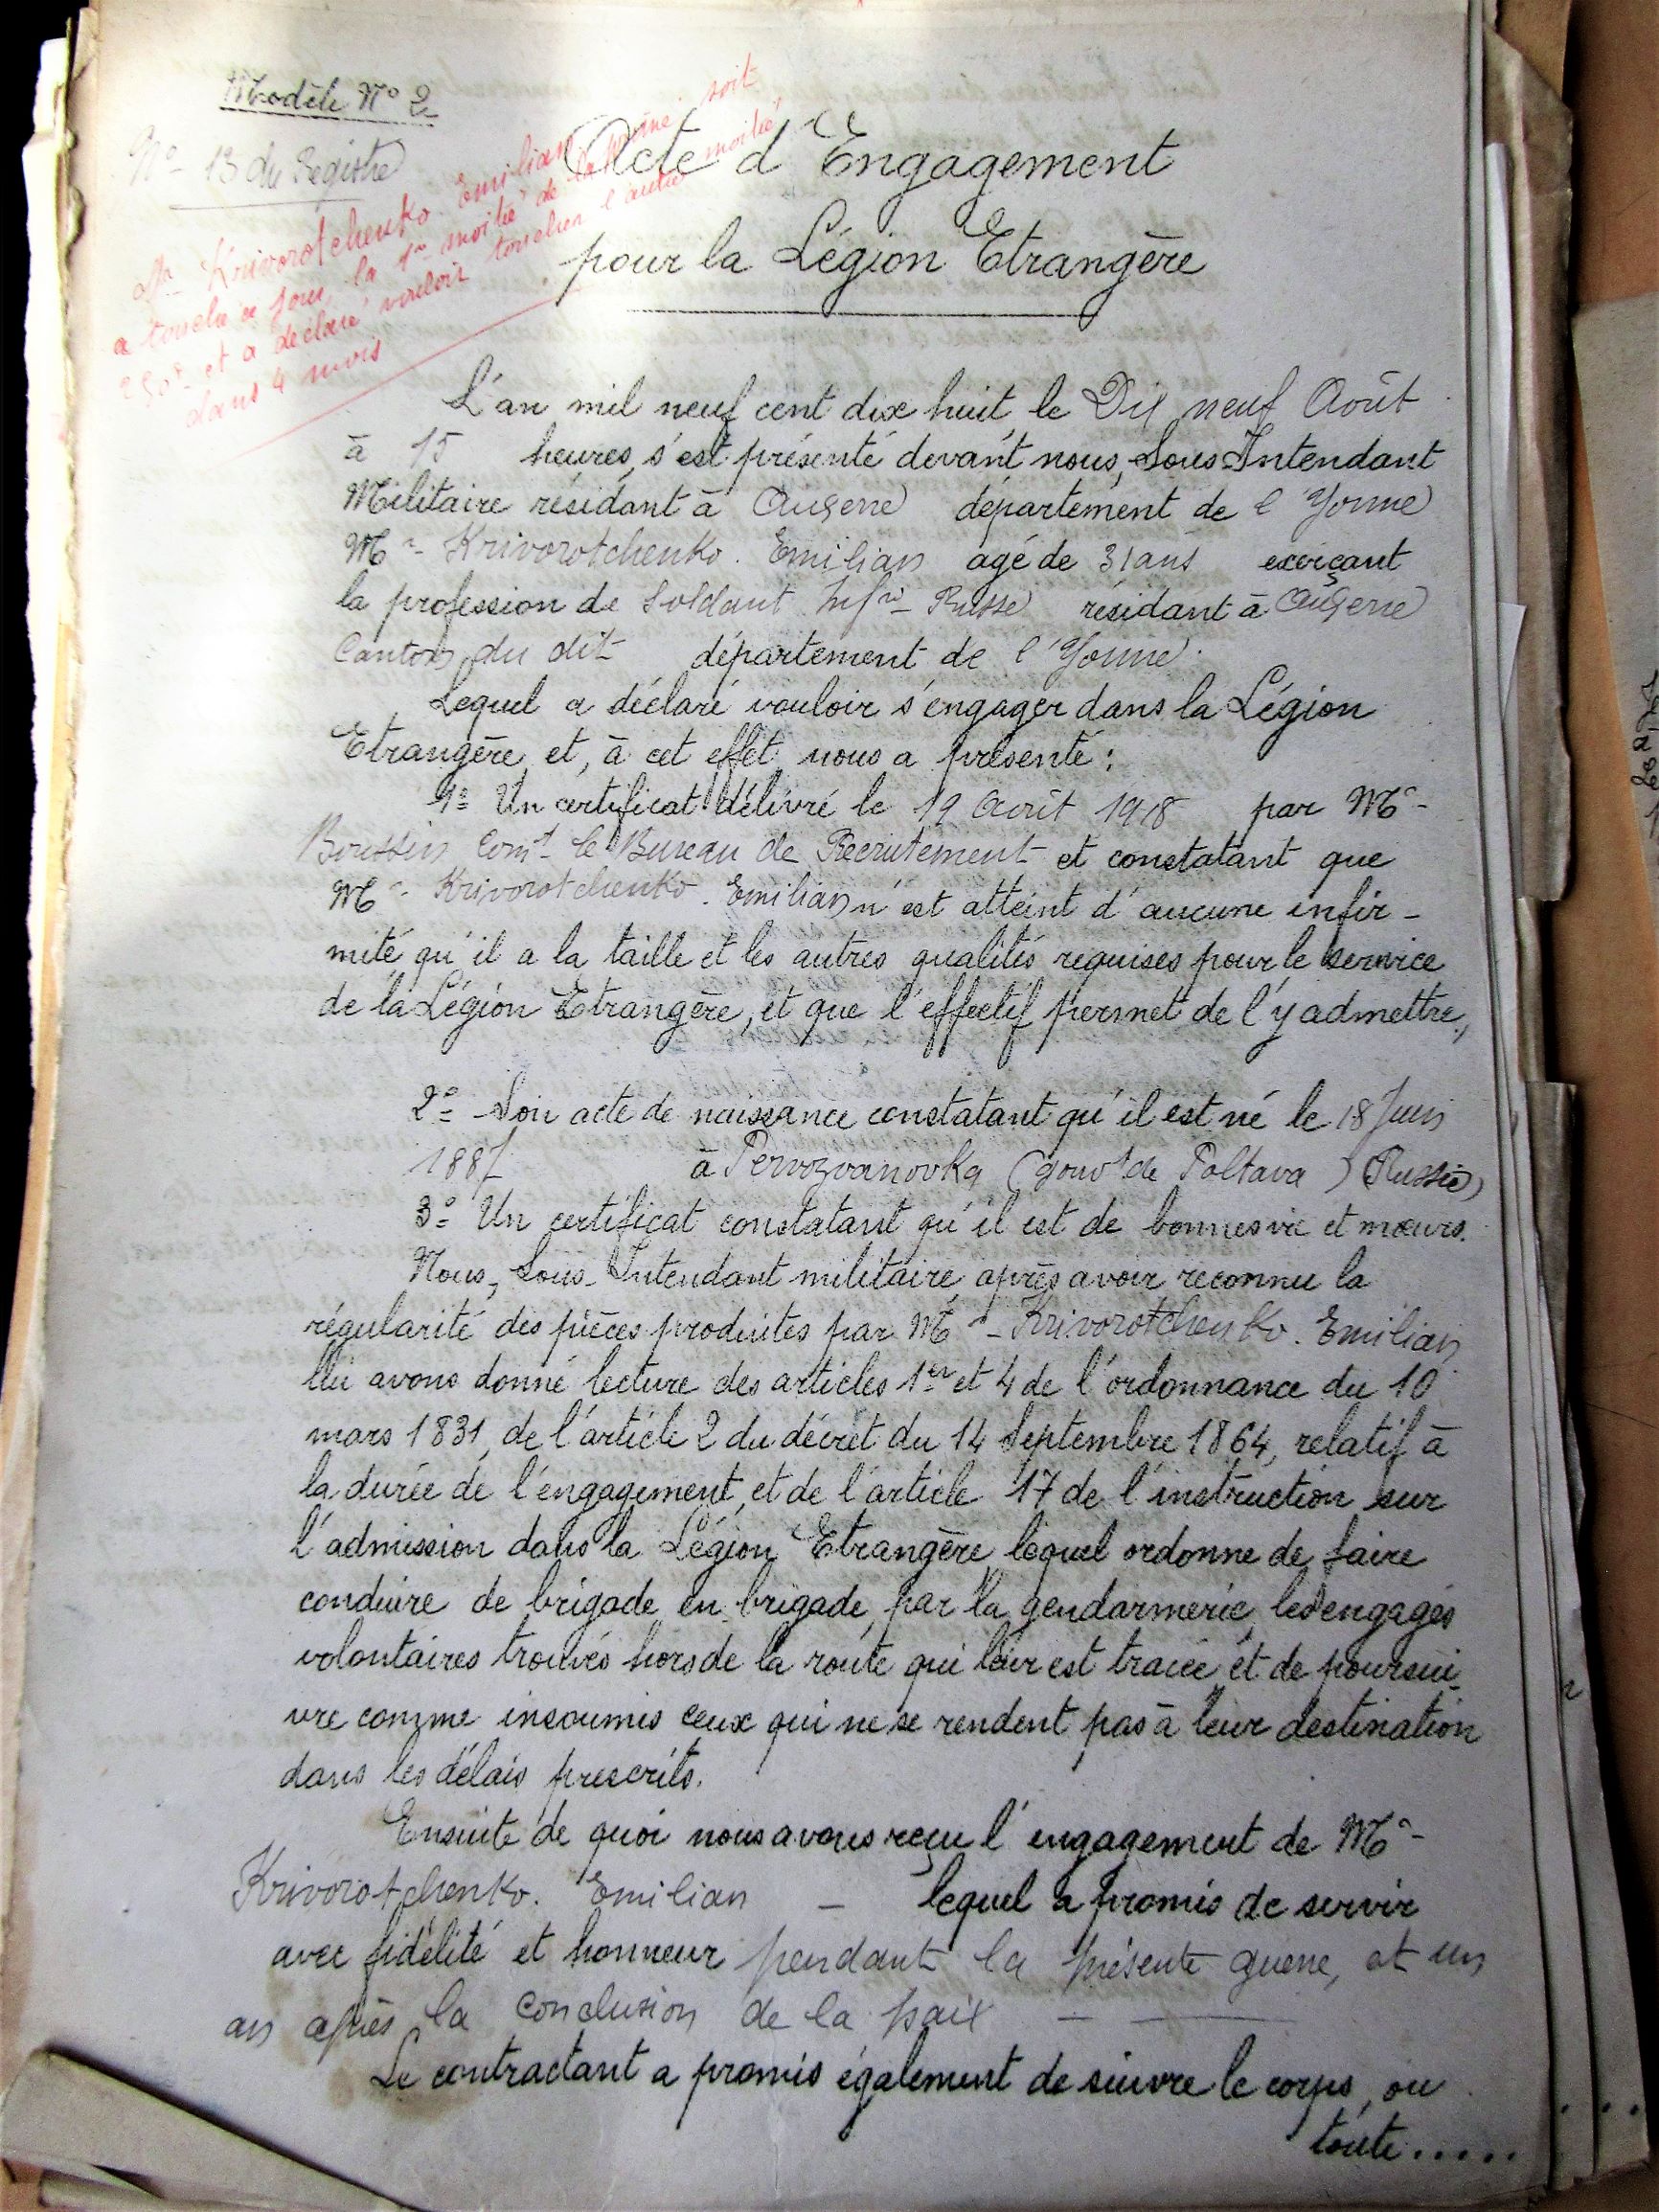 Modèle N° 2
N° 13 du Registre
Mr Krivorotchenko Emilian
a touché ce jour la 1re moitié de la prime soit
250f et a déclaré vouloir toucher l'autre moitié
dans 4 mois
Acte d'Engagement
pour la Légion Etrangère
L'an mil neuf cent dix huit, le Dix neuf Août
à 15 heures, s'est présenté devant nous, Sous-Intendant
Militaire résidant à Auxerre département de l'Yonne
Mr Krivorotchenko. Emilian agé de 31 ans exerçant
la profession de Soldat Infie Russe résidant à Auxerre
Canton du dit département de l'Yonne.
Lequel a déclaré vouloir s'engager dans la Légion
Etrangère et, à cet effet, nous a présenté :
1° Un certificat délivré le 19 Août 1918 par Mr
Boussin Comt le Bureau de Recrutement et constatant que
Mr Krivorotchenko. Emilian n'est atteint d'aucune infir-
mité qu'il a la taille et les autres qualités requises pour le service
de la Légion Etrangère, et que l'effectif permet de l'y admettre,
2° Son acte de naissance constatant qu'il est né le 18 Juin
1887 à Pervozvanovka (gouvt de Poltava) (Russie)
3° Un certificat constatant qu'il est de bonnes vie et mœurs.
Nous, Sous-Intendant militaire, après avoir reconnu la
régularité des pièces produites par Mr Krivorotchenko. Emilian
lui avons donné lecture des articles 1er et 4 de l'ordonnance du 10
mars 1831, de l'article 2 du décret du 14 Septembre 1864, relatif à
la durée de l'engagement, et de l'article 17 de l'instruction sur
l'admission dans la Légion Etrangère, lequel ordonne de faire
conduire de brigade en brigade, par la gendarmerie, les engagés
volontaires trouvés hors de la route qui leur est tracée et de poursui-
vre comme insoumis ceux qui ne se rendent pas à leur destination
dans les délais prescrits.
Ensuite de quoi nous avons reçu l'engagement de Mr
Krivorotchenko. Emilian – lequel a promis de servir
avec fidélité et honneur pendant la présente guerre, et un
an après la conclusion de la paix –
Le contractant a promis également de suivre le corps, ou
toute.....